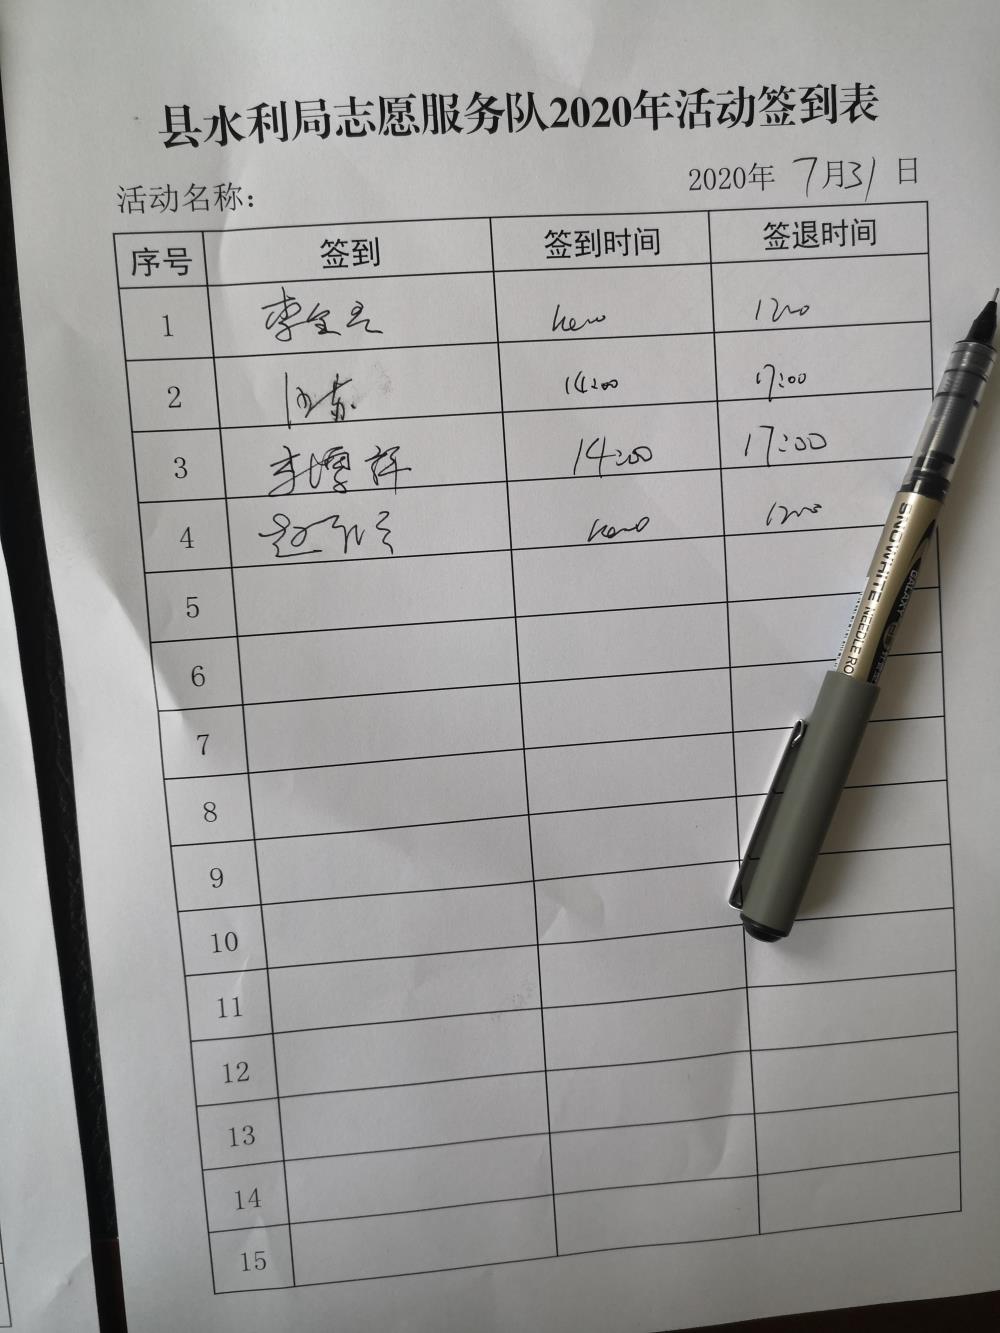 县水利局志愿服务队2020年活动签到表
活动名称: 2020年 7月31日
序号 签到 签到时间 签退时间
1
2 14:00 17:00
3 李 祥 14:00 17:00
4 赵
5
6
7
8
9
10
11
12
13
14
15
SNOWHITE NEEDLE RO
GALAXY